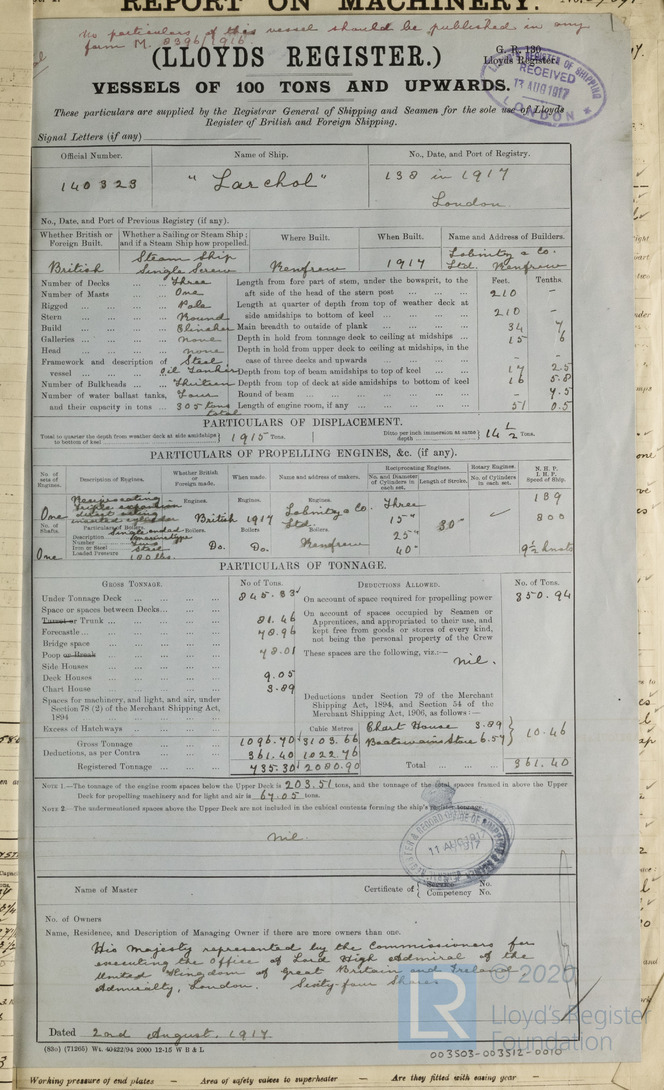 REPORT ON MACHINERY.
No particulars of this vessel should be published in any
form M. 8396/1916
(LLOYDS REGISTER.)
G. R. 130
Lloyds Register.
LLOYD'S REGISTER OF SHIPPING
RECEIVED
13 AUG 1917
LONDON
VESSELS OF 100 TONS AND UPWARDS.
These particulars are supplied by the Registrar General of Shipping and Seamen for the sole use of Lloyds
Register of British and Foreign Shipping.
Signal Letters (if any)
Official Number. Name of Ship. No., Date, and Port of Registry.
140323 "Larchol" 138 in 1917
London.
No., Date, and Port of Previous Registry (if any).
Whether British or Foreign Built. Whether a Sailing or Steam Ship; and if a Steam Ship how propelled. Where Built. When Built. Name and Address of Builders.
British Steam Ship Single Screw Renfrew 1917 Lobnitz & Co. Ltd. Renfrew
Feet. Tenths.
Number of Decks Three Length from fore part of stem, under the bowsprit, to the
Number of Masts One aft side of the head of the stern post 210 -
Rigged Pole Length at quarter of depth from top of weather deck at
Stern Round side amidships to bottom of keel 210 -
Build Clincher Main breadth to outside of plank 34 7
Galleries none Depth in hold from tonnage deck to ceiling at midships 15 6
Head none Depth in hold from upper deck to ceiling at midships, in the
Framework and description of Steel case of three decks and upwards - -
vessel Oil Tanker Depth from top of beam amidships to top of keel 17 2.5
Number of Bulkheads Thirteen Depth from top of deck at side amidships to bottom of keel 16 5.8
Number of water ballast tanks, Four Round of beam - 7.5
and their capacity in tons 305 tons total Length of engine room, if any 51 0.5
PARTICULARS OF DISPLACEMENT.
Total to quarter the depth from weather deck at side amidships to bottom of keel 1915 Tons. Ditto per inch immersion at same depth 14 1/2 Tons.
PARTICULARS OF PROPELLING ENGINES, &c. (if any).
No. of sets of Engines. Description of Engines. Whether British or Foreign made. When made. Name and address of makers. Reciprocating Engines. Rotary Engines. N. H. P. I. H. P. Speed of Ship.
No. and Diameter of Cylinders in each set. Length of Stroke. No. of Cylinders in each set.
One Reciprocating triple expansion direct acting inverted cylinder Engines. British Engines. 1917 Engines. Lobnitz & Co. Ltd. Three 15" 25" 40" 30" 189 800 9 1/2 knots
No. of Shafts. Particulars of Boilers. Boilers. Boilers Boilers.
One Description Single ended Marine type Do. Do. Renfrew
Number Two
Iron or Steel Steel
Loaded Pressure 100 lbs.
PARTICULARS OF TONNAGE.
GROSS TONNAGE. No of Tons. DEDUCTIONS ALLOWED. No. of Tons.
Under Tonnage Deck 845.33 On account of space required for propelling power 350.94
Space or spaces between Decks On account of spaces occupied by Seamen or
Turret or Trunk 81.46 Apprentices, and appropriated to their use, and
Forecastle 78.96 kept free from goods or stores of every kind,
Bridge space not being the personal property of the Crew
Poop or Break 78.01 These spaces are the following, viz.:—
Side Houses nil.
Deck Houses 9.05
Chart House 3.89
Spaces for machinery, and light, and air, under Deductions under Section 79 of the Merchant
Section 78 (2) of the Merchant Shipping Act, Shipping Act, 1894, and Section 54 of the
1894 Merchant Shipping Act, 1906, as follows:—
Excess of Hatchways Cubic Metres Chart House 3.89
Gross Tonnage 1096.70 3103.66 Boatswains Store 6.57 10.46
Deductions, as per Contra 361.40 1022.76
Registered Tonnage 735.30 2080.90 Total 361.40
NOTE 1.—The tonnage of the engine room spaces below the Upper Deck is 203.51 tons, and the tonnage of the total spaces framed in above the Upper
Deck for propelling machinery and for light and air is 67.05 tons.
NOTE 2.—The undermentioned spaces above the Upper Deck are not included in the cubical contents forming the ship's register tonnage
nil.
11 AUG 1917
Name of Master Certificate of Service No.
Competency No.
No. of Owners
Name, Residence, and Description of Managing Owner if there are more owners than one.
His Majesty represented by the Commissioners for
executing the Office of Lord High Admiral of the
United Kingdom of Great Britain and Ireland
Admiralty, London. Sixty-four Shares
Dated 22nd August, 1917
(83o) (71265) Wt. 40422/94 2000 12-15 W B & L
© 2020
LR
Lloyd's Register
Foundation
003503-003512-0010
Working pressure of end plates — Area of safety valves to superheater — Are they fitted with easing gear —